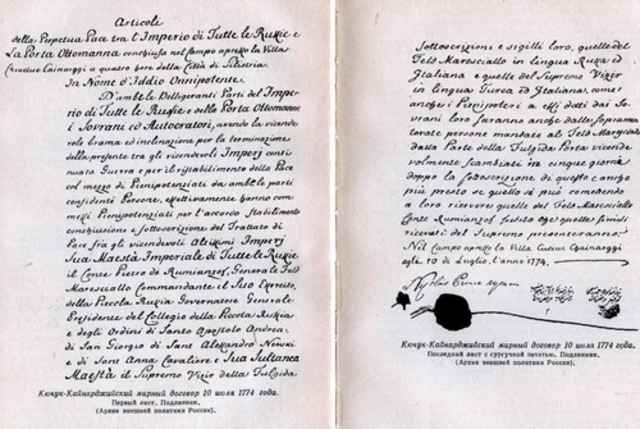 Articoli
della Perpetua Pace tra l'Imperio di Tutte le Russie e
La Porta Ottomanna conchiusa nel Campo apresso la Villa
Chiusciuc Cainarggi a quatro hore della Città di Silistria.
In Nome d'Iddio Onnipotente.
D'ambele Belligeranti Parti dell'Impe-
rio di Tutte le Russie e della Porta Ottomanna
i Sovrani ed Autocratori, avendo la vicende
vole brama ed inclinazione per la terminazione
della presente tra gli vicendevoli Imperj conti
nuata Guerra e per il ristabilimento della Pace
col mezzo di Plenipotenziati da ambele parti
confidenti Persone, effettivamente hanno com
messi Plenipotenziati per l'accordo stabilimento
conchiusione e sottoscrizione del Trattato di
Pace fra gli vicendevoli Altissimi Imperj
Sua Maestà Imperiale di Tutte le Russie.
il Conte Pietro de Rumianzof, Generale Feld
Maresciallo Commandante il Suo Esercito,
della Piccola Russia Governatore Generale
Presidente del Collegio della Piccola Russia
e degli Ordini di Santo Apostolo Andrea.
di San Giorgio di Sant Alessandro Newski
e di Sant Anna Cavaliere e Sua Sultanea
Maestà il Supremo Vizir della Fulgida
Кючук-Кайнарджийский мирный договор 10 июля 1774 года.
Первый лист. Подлинник.
(Архив внешней политики России).
Sottoscrizione e sigilli loro, quelle del
Feld Maresciallo in lingua Russa ed
Italiana e quelle del Supremo Vizir
in lingua Turca ed Italiana, come
anche i Plenipoteri a essi datti dai So-
vrani loro saranno anche dalle sopramen
tovate persone mandate al Feld Maresciallo
dalla Parte della Fulgida Porta vicende
volmente scambiati in cinque giorni
doppo la sotoscrizion di questo e anche
più presto se quello si può comeendo
a loro ricevere quelle del Feld Maresciallo
Conte Rumianzof subito che quelle simili
ricevuti del Supremo presenteranno.
Nel Campo apresso la Villa Cuciuc Cainarggi
agli 10 di Luglio, l'anno 1774.
Кючук-Кайнарджийский мирный договор 10 июля 1774 года.
Последний лист с сургучной печатью. Подлинник.
(Архив внешней политики России).